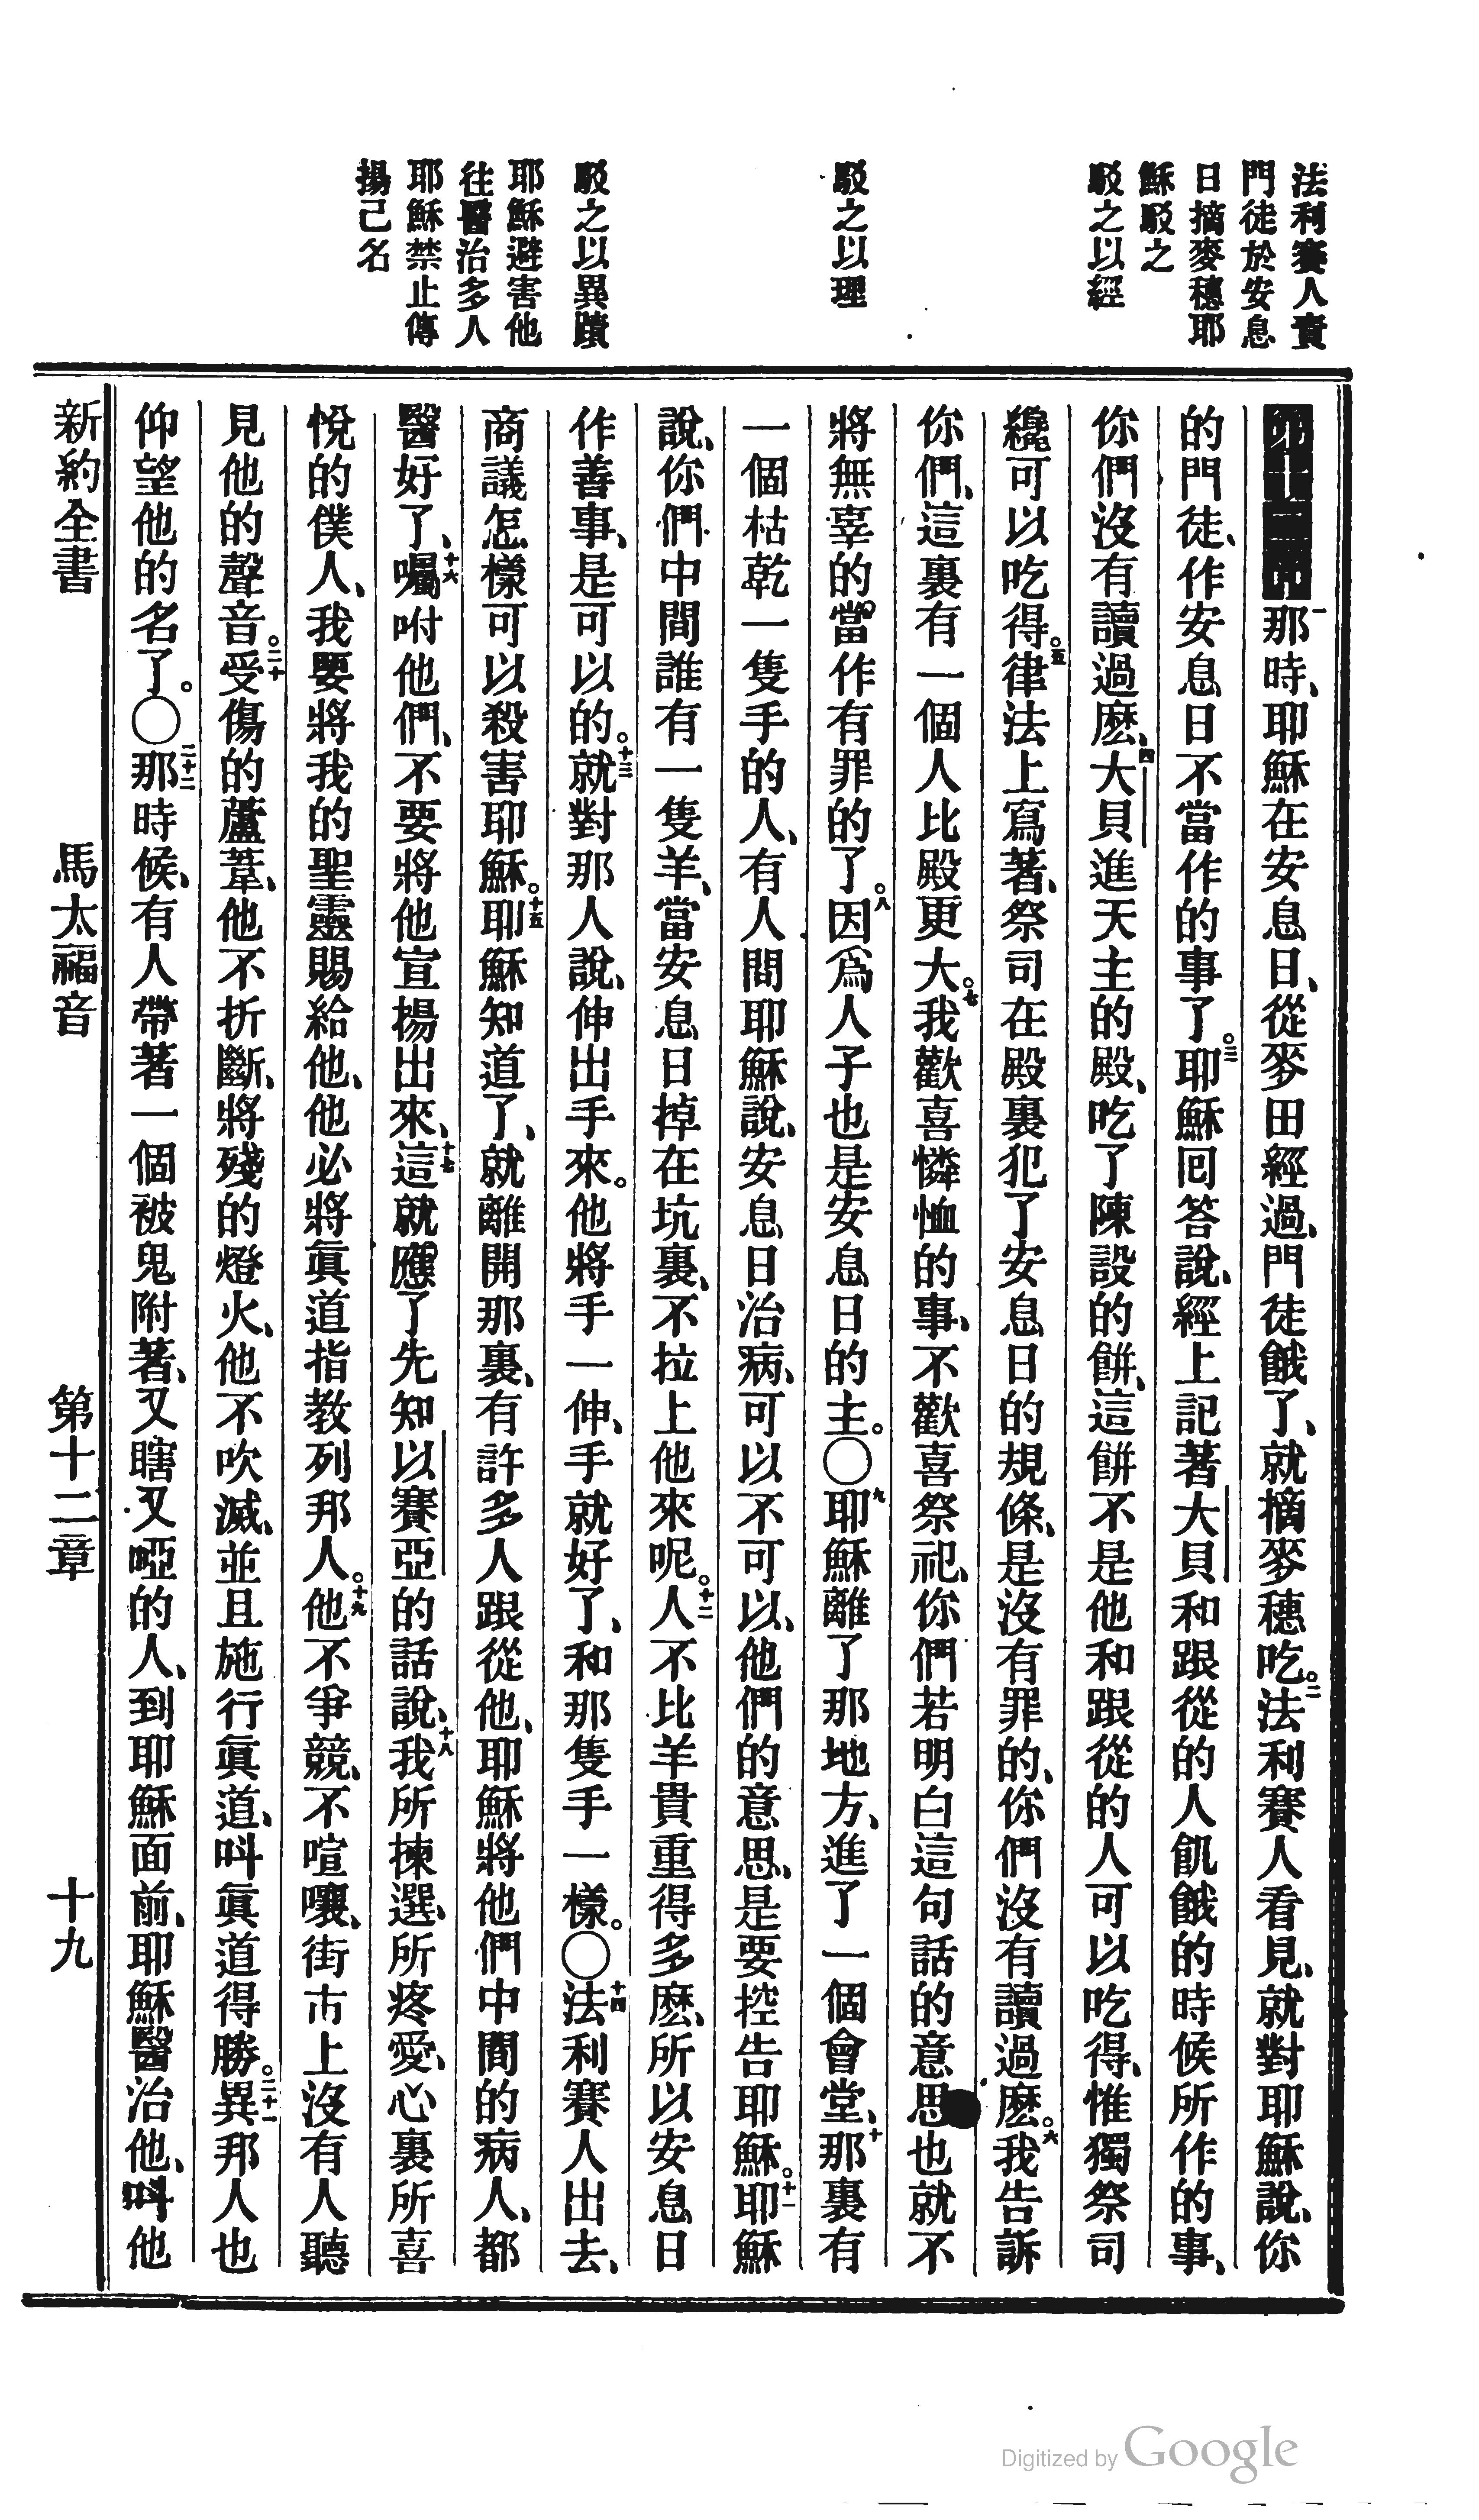 法利賽人責
門徒於安息
日摘麥穗耶
穌駁之
駁之以經
駁之以理
駁之以異蹟
耶穌避害他
往醫治多人
耶穌禁止傳
揚己名
一那時、耶穌在安息日、從麥田經過、門徒餓了、就摘麥穗吃。二法利賽人看見、就對耶穌說、你
的門徒、作安息日不當作的事了。三耶穌回答說、經上記著大貝和跟從的人飢餓的時候所作的事、
你們沒有讀過麽、四大貝進天主的殿、吃了陳設的餅、這餅不是他和跟從的人可以吃得、惟獨祭司
纔可以吃得。五律法上寫著、祭司在殿裏犯了安息日的規條、是沒有罪的、你們沒有讀過麽。六我告訴
你們、這裏有一個人比殿更大。七我歡喜憐恤的事、不歡喜祭祀、你們若明白這句話的意思也就不
將無辜的、當作有罪的了。八因爲人子也是安息日的主。〇九耶穌離了那地方、進了一個會堂、十那裏有
一個枯乾一隻手的人、有人問耶穌說、安息日治病、可以不可以、他們的意思、是要控告耶穌。十一耶穌
說、你們中間誰有一隻羊、當安息日掉在坑裏、不拉上他來呢。十二人不比羊貴重得多麽、所以安息日
作善事、是可以的。十三就對那人說、伸出手來。他將手一伸、手就好了、和那隻手一樣。〇十四法利賽人出去、
商議怎樣可以殺害耶穌。十五耶穌知道了、就離開那裏、有許多人跟從他、耶穌將他們中間的病人、都
醫好了、十六囑咐他們、不要將他宣揚出來、十七這就應了先知以賽亞的話說、十八我所揀選、所疼愛、心裏所喜
悅的僕人、我要將我的聖靈賜給他、他必將眞道指教列邦人。十九他不爭競、不喧嚷、街市上沒有人聽
見他的聲音。二十受傷的蘆葦、他不折斷、將殘的燈火、他不吹滅、並且施行眞道、呌眞道得勝。二十一異邦人也
仰望他的名了。〇二十二那時候、有人帶著一個被鬼附著、又瞎又啞的人、到耶穌面前、耶穌醫治他、呌他
新約全書 馬太福音 第十二章 十九
Digitized by Google